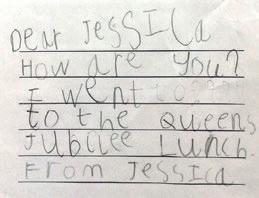 Dear Jessica
How are you?
I went
to the Queens
Jubilee Lunch.
From Jessica